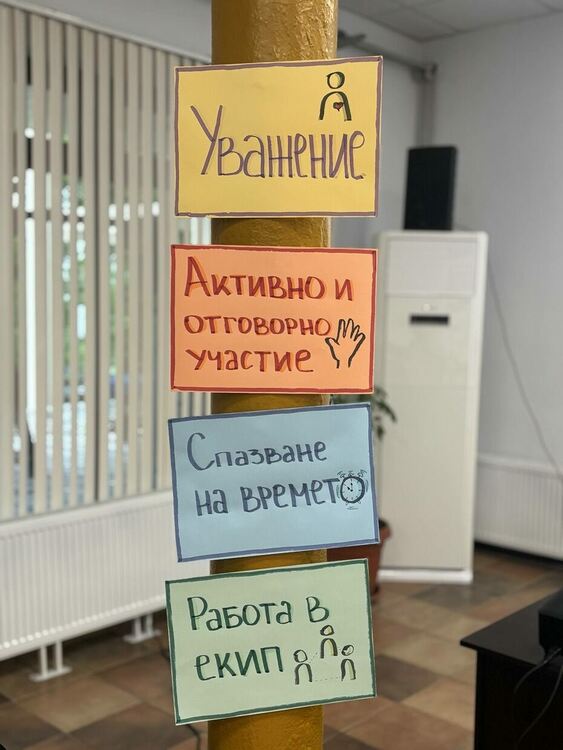 Уважение
Активно и
отговорно
участие
Спазване
на времето
Работа в
екип